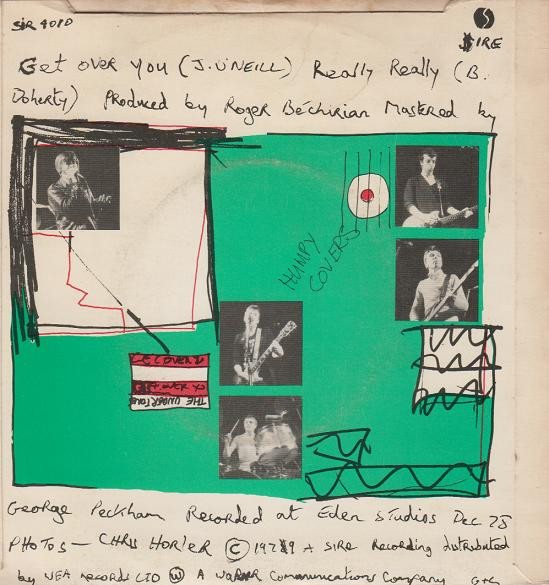 SIR 4010
SIRE
Get over you (J. O'NEILL) Really Really (B.
Doherty) Produced by Roger Béchirian Mastered by
HUMPY
COVERS
GET OVER YO
THE UNDERTONES
George Peckham Recorded at Eden Studios Dec 78
PHOTOS — CHRIS HORLER © 1979 A SIRE Recording distributed
by WEA records LTD Ⓦ A Warner Communications Company